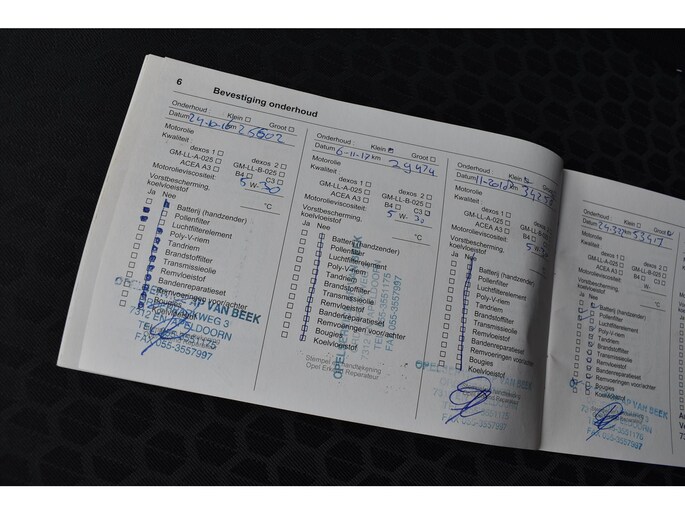 6
Bevestiging onderhoud
Onderhoud: Klein Groot
Datum 24-10-16 km 25602
Motorolie
Kwaliteit
dexos 1 dexos 2
GM-LL-A-025 GM-LL-B-025
ACEA A3 B4 C3
Motorolieviscositeit: 5 W- 30
Vorstbescherming, koelvloeistof °C
Ja Nee
Batterij (handzender)
Pollenfilter
Luchtfilterelement
Poly-V-riem
Tandriem
Brandstoffilter
Transmissieolie
Remvloeistof
Bandenreparatieset
Remvoeringen voor/achter
Bougies
Koelvloeistof
AP VAN BEEK
7312 APELDOORN
FAX 055-3557997
Klein Groot
Datum 6-11-17 km 29474
Motorolie
Kwaliteit
dexos 1 dexos 2
GM-LL-A-025 GM-LL-B-025
ACEA A3 B4 C3
Motorolieviscositeit: 5 W- 30
Vorstbescherming, koelvloeistof °C
Ja Nee
Batterij (handzender)
Pollenfilter
Luchtfilterelement
Poly-V-riem
Tandriem
Brandstoffilter
Transmissieolie
Remvloeistof
Bandenreparatieset
Remvoeringen voor/achter
Bougies
Koelvloeistof
Stempel handtekening
Opel Erkend Reparateur
Klein
Datum 11-2018 km
Motorolie
Kwaliteit
dexos 1 dexos 2
GM-LL-A-025 GM-LL-B-025
ACEA A3 B4 C3
Motorolieviscositeit:
Vorstbescherming, koelvloeistof °C
Ja Nee
Batterij (handzender)
Pollenfilter
Luchtfilterelement
Poly-V-riem
Tandriem
Brandstoffilter
Transmissieolie
Remvloeistof
Bandenreparatieset
Remvoeringen voor/achter
Bougies
Koelvloeistof
055-3551175
FAX 055-3557997
Onderhoud: Klein Groot
Datum km
Motorolie
Kwaliteit
dexos 1 dexos 2
GM-LL-A-025 GM-LL-B-025
ACEA A3 B4 C3
Motorolieviscositeit:
Vorstbescherming, koelvloeistof °C
Ja Nee
Batterij (handzender)
Pollenfilter
Luchtfilterelement
Poly-V-riem
Tandriem
Brandstoffilter
Transmissieolie
Remvloeistof
Bandenreparatieset
Remvoeringen voor/achter
Bougies
Koelvloeistof
AP VAN BEEK
FAX 055-3557997